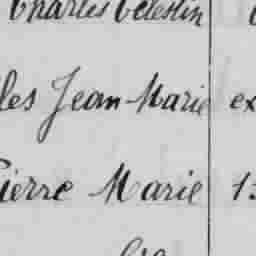 Charles Célestin
les Jean-Marie ex
Pierre Marie 1